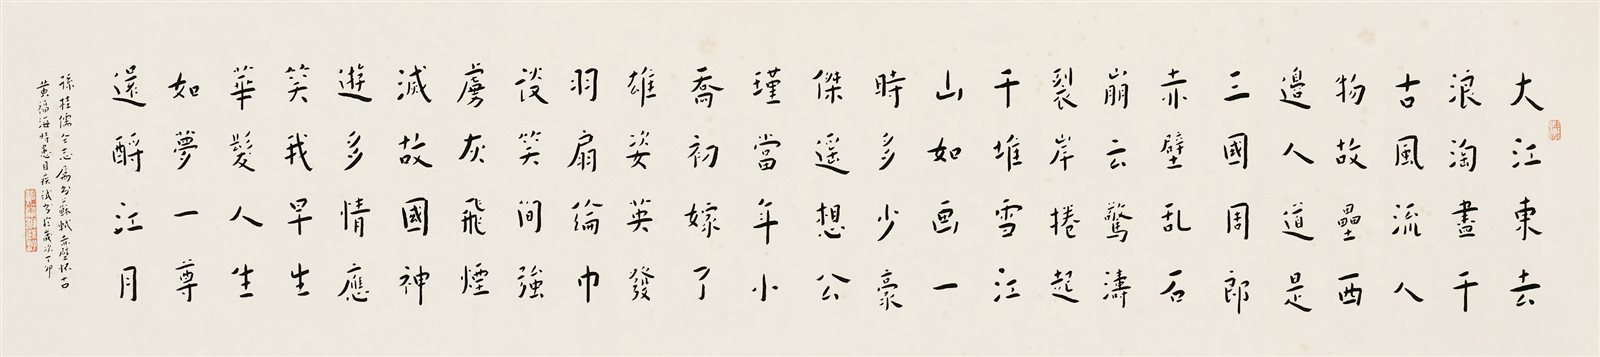 大江東去
浪淘盡千
古風流人
物故壘西
邊人道是
三國周郎
赤壁乱石
崩云驚濤
裂岸捲起
千堆雪江
山如画一
時多少豪
傑遥想公
瑾當年小
喬初嫁了
雄姿英發
羽扇綸巾
談笑间強
虜灰飛煙
滅故國神
遊多情應
笑我早生
華髮人生
如夢一尊
還酹江月
孫桂儒仝志属书蘇軾赤壁怀古
黄福海時患目疾試书於歲次丁卯